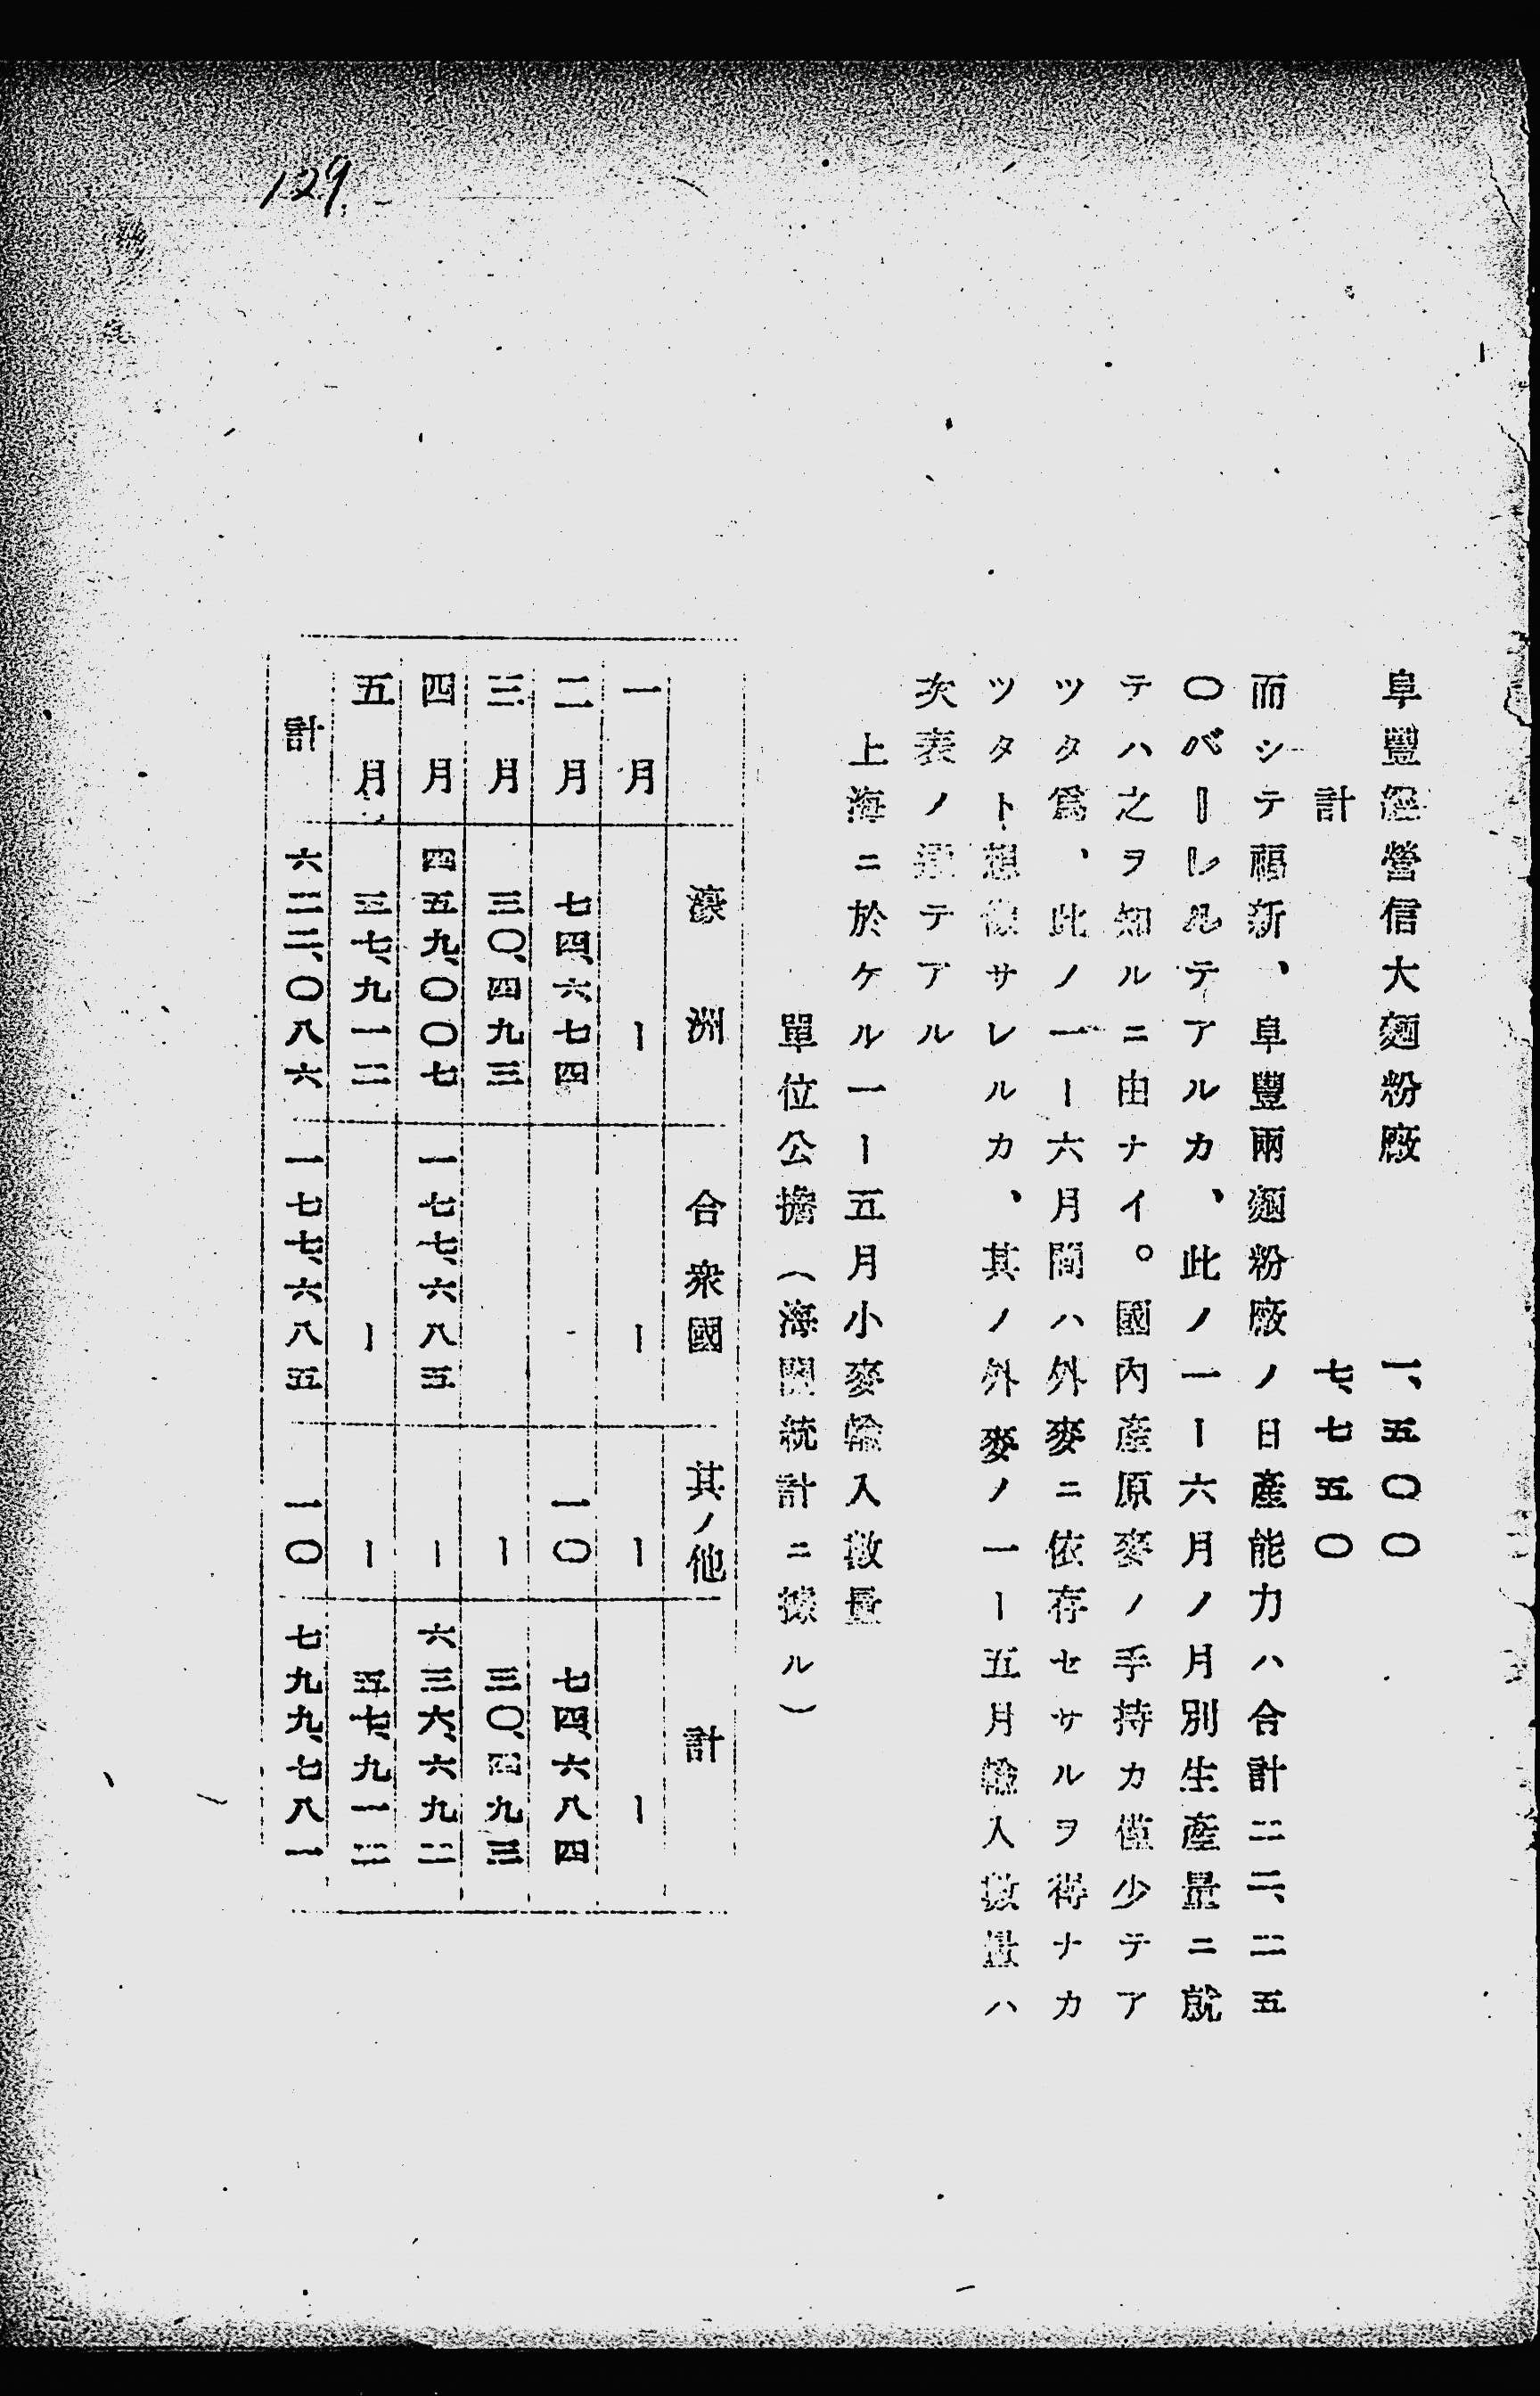 129
阜豐經營信大麵粉廠　一、五〇〇
計　七、七五〇
而シテ福新、阜豐兩麵粉廠ノ日產能力ハ合計二二、二五
〇バーレルテアルカ、此ノ一ー六月ノ月別生產量ニ就
テハ之ヲ知ルニ由ナイ。國內產原麥ノ手持カ僅少テア
ツタ爲、此ノ一ー六月間ハ外麥ニ依存セサルヲ得ナカ
ツタト想像サレルカ、其ノ外麥ノ一ー五月輸入數量ハ
次表ノテアル
上海ニ於ケル一ー五月小麥輸入數量
單位公擔（海關統計ニ據ル）
濠洲　合衆國　其ノ他　計
一月　ー　ー　ー　ー
二月　七四、六七四　-　一〇　七四、六八四
三月　三〇、四九三　ー　三〇、四九三
四月　四五九、〇〇七　一七七、六八五　ー　六三六、六九二
五月　五七、九一二　ー　ー　五七、九一二
計　六二二、〇八六　一七七、六八五　一〇　七九九、七八一